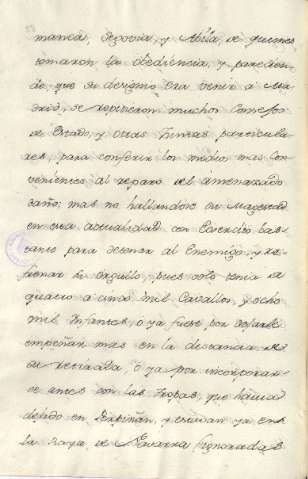 manca, Segovia, y Abila, de quienes
tomaron la obediencia, y parecien-
do que su designio era venir a Ma
drid, se tuvieron muchos Consejos
de Estado, y otras Juntas particula
res, para conferir los medios mas con
venientes al reparo del amenazado
daño; mas no hallandose su Magestad
en esta actualidad con Exercito bas
tante para detener al Enemigo, y re
frenar su orgullo, pues solo tenia de
quatro a cinco mil Cavallos, y ocho
mil Infantes, ò ya fuese por dejarle
empeñar mas en la distancia de
su retirada, ò ya por incorporar
se antes con las Tropas, que havia
dejado en Perpiñan, y estavan ya en
la Raya de Navarra